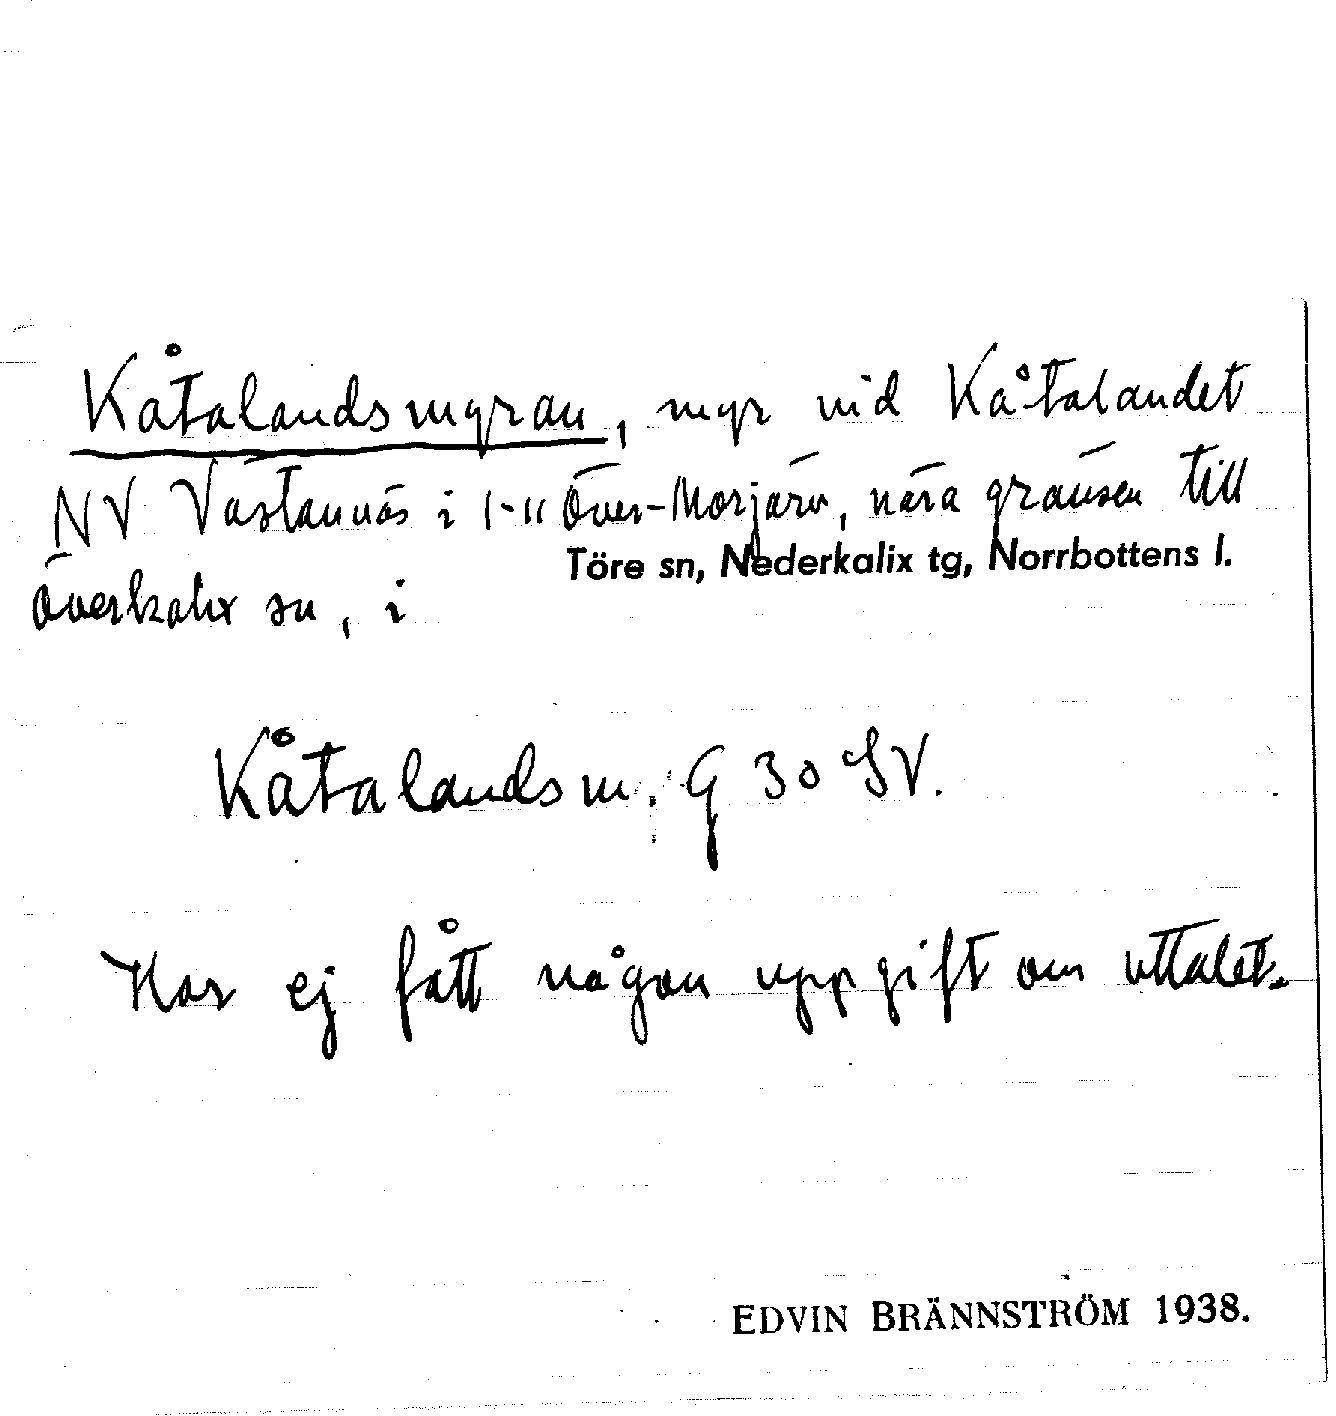 Kåtalandsmyran, myr vid Kåtalandet
NV Västannäs i 1-11 Över-Morjärv, nära gränsen till
Töre sn, Nederkalix tg, Norrbottens l.
Överkalix sn, i
Kåtalandsm. G 30 SV.
Har ej fått någon uppgift om uttalet.
EDVIN BRÄNNSTRÖM 1938.